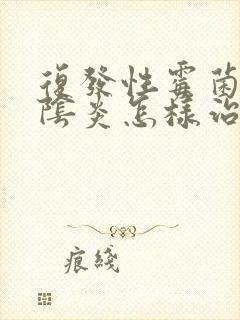 復發性霉菌
陰炎怎樣治
痕綫